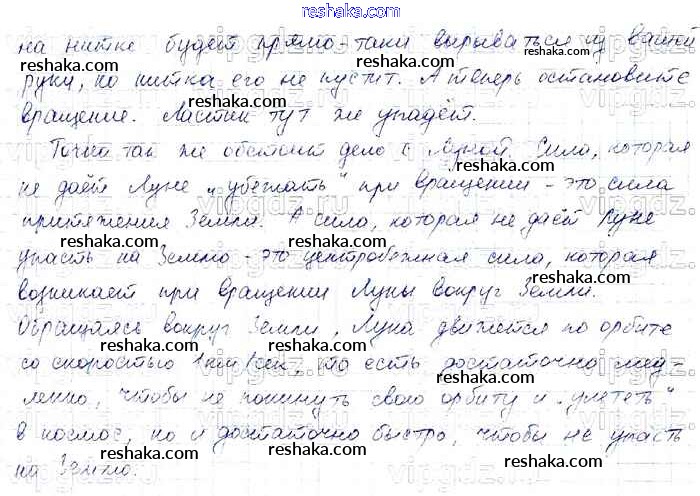 reshaka.com
на нитке будет прямо-таки вырываться из вашей
руки, но нитка его не пустит. А теперь остановите
вращение. Ластик тут же упадёт.
Точно так же обстоит дело с Луной. Сила, которая
не даёт Луне „убежать“ при вращении - это сила
притяжения Земли. А сила, которая не даёт Луне
упасть на Землю - это центробежная сила, которая
возникает при вращении Луны вокруг Земли.
Обращаясь вокруг Земли, Луна движется по орбите
со скоростью 1км/сек, то есть достаточно мед-
ленно, чтобы не покинуть свою орбиту и „улететь“
в космос, но и достаточно быстро, чтобы не упасть
на Землю.